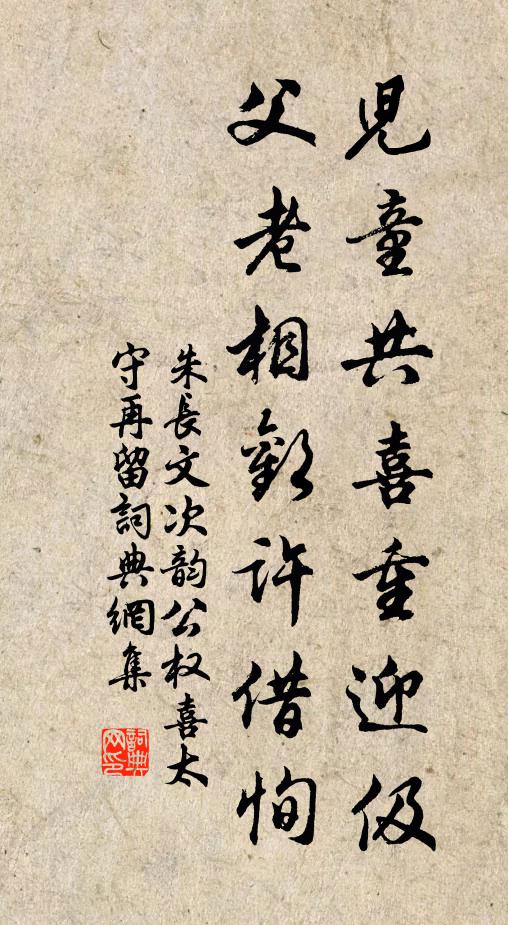 兒童共喜重迎伋
父老相歡許借恂
朱長文次韵公权喜太
守再留詞典網集
詞典网印